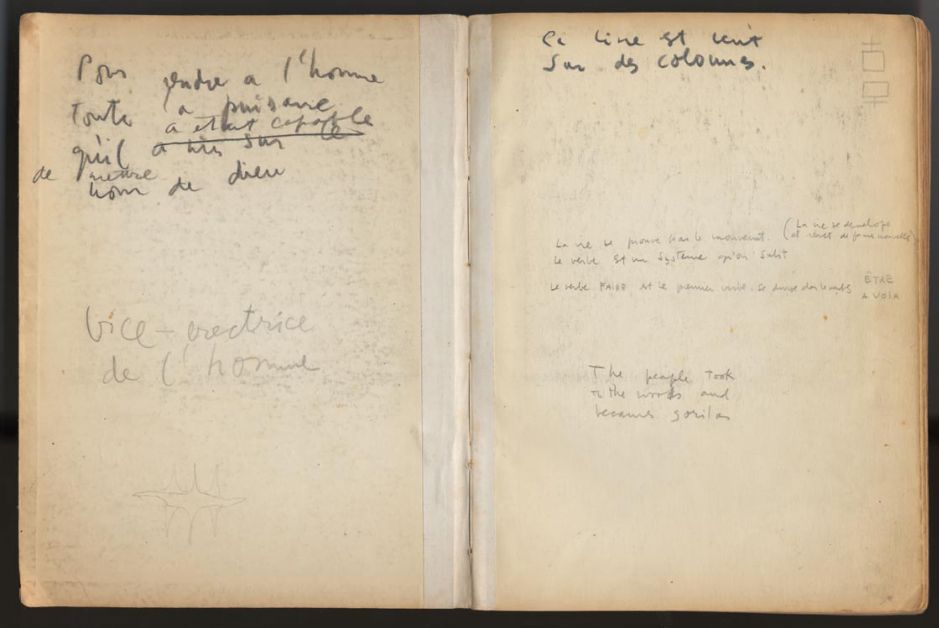 Pour rendre a l'homme
Toute la puisance
qu'il a était capable
a mis sur le
de mettre
nom de dieu
vice-rectrice
de l'homme
Ce livre est écrit
Sur des colonnes.
La vie se prouve par le mouvement. (La vie se développe
et revêt de forme nouvelle)
Le verbe est un système qu'on subit
Le verbe FAIRE est le premier verbe. Se divise dans le verbe ÊTRE
AVOIR
The people took
the woods and
becames gorilas